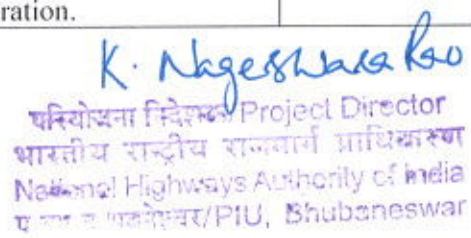 ration.
K. Nageswara Rao
परियोजना निदेशक Project Director
भारतीय राष्ट्रीय राजमार्ग प्राधिकरण
National Highways Authority of India
/PIU, Bhubaneswar